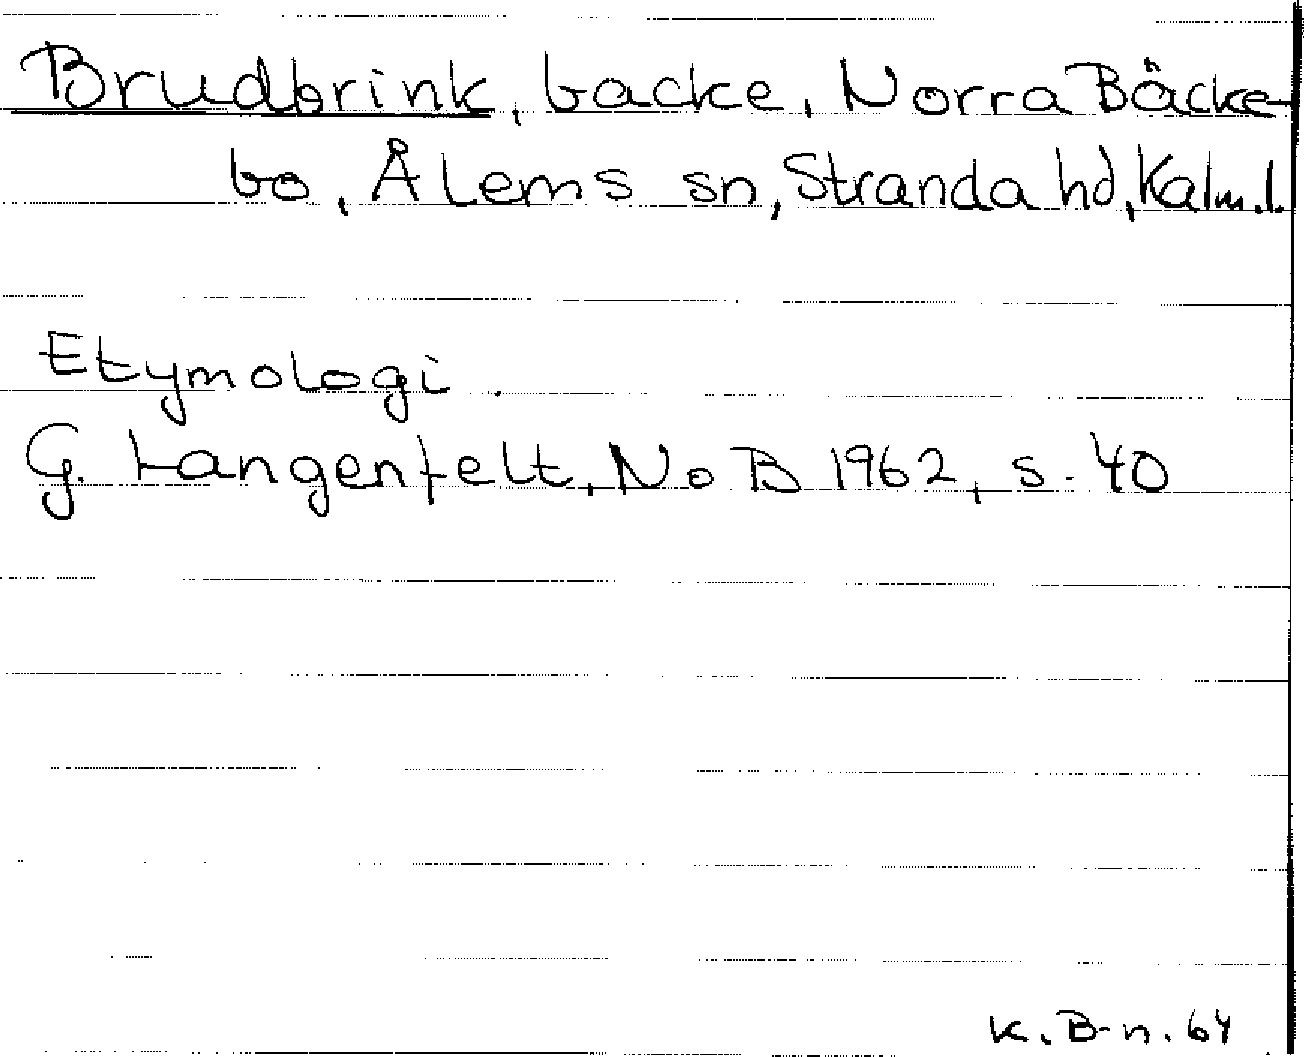 Brudbrink, backe, Norra Bäcke-
bo, Ålems sn, Stranda hd, Kalm.l.
Etymologi.
G. Langenfelt, NoB 1962, s. 40
K.B-n. 64